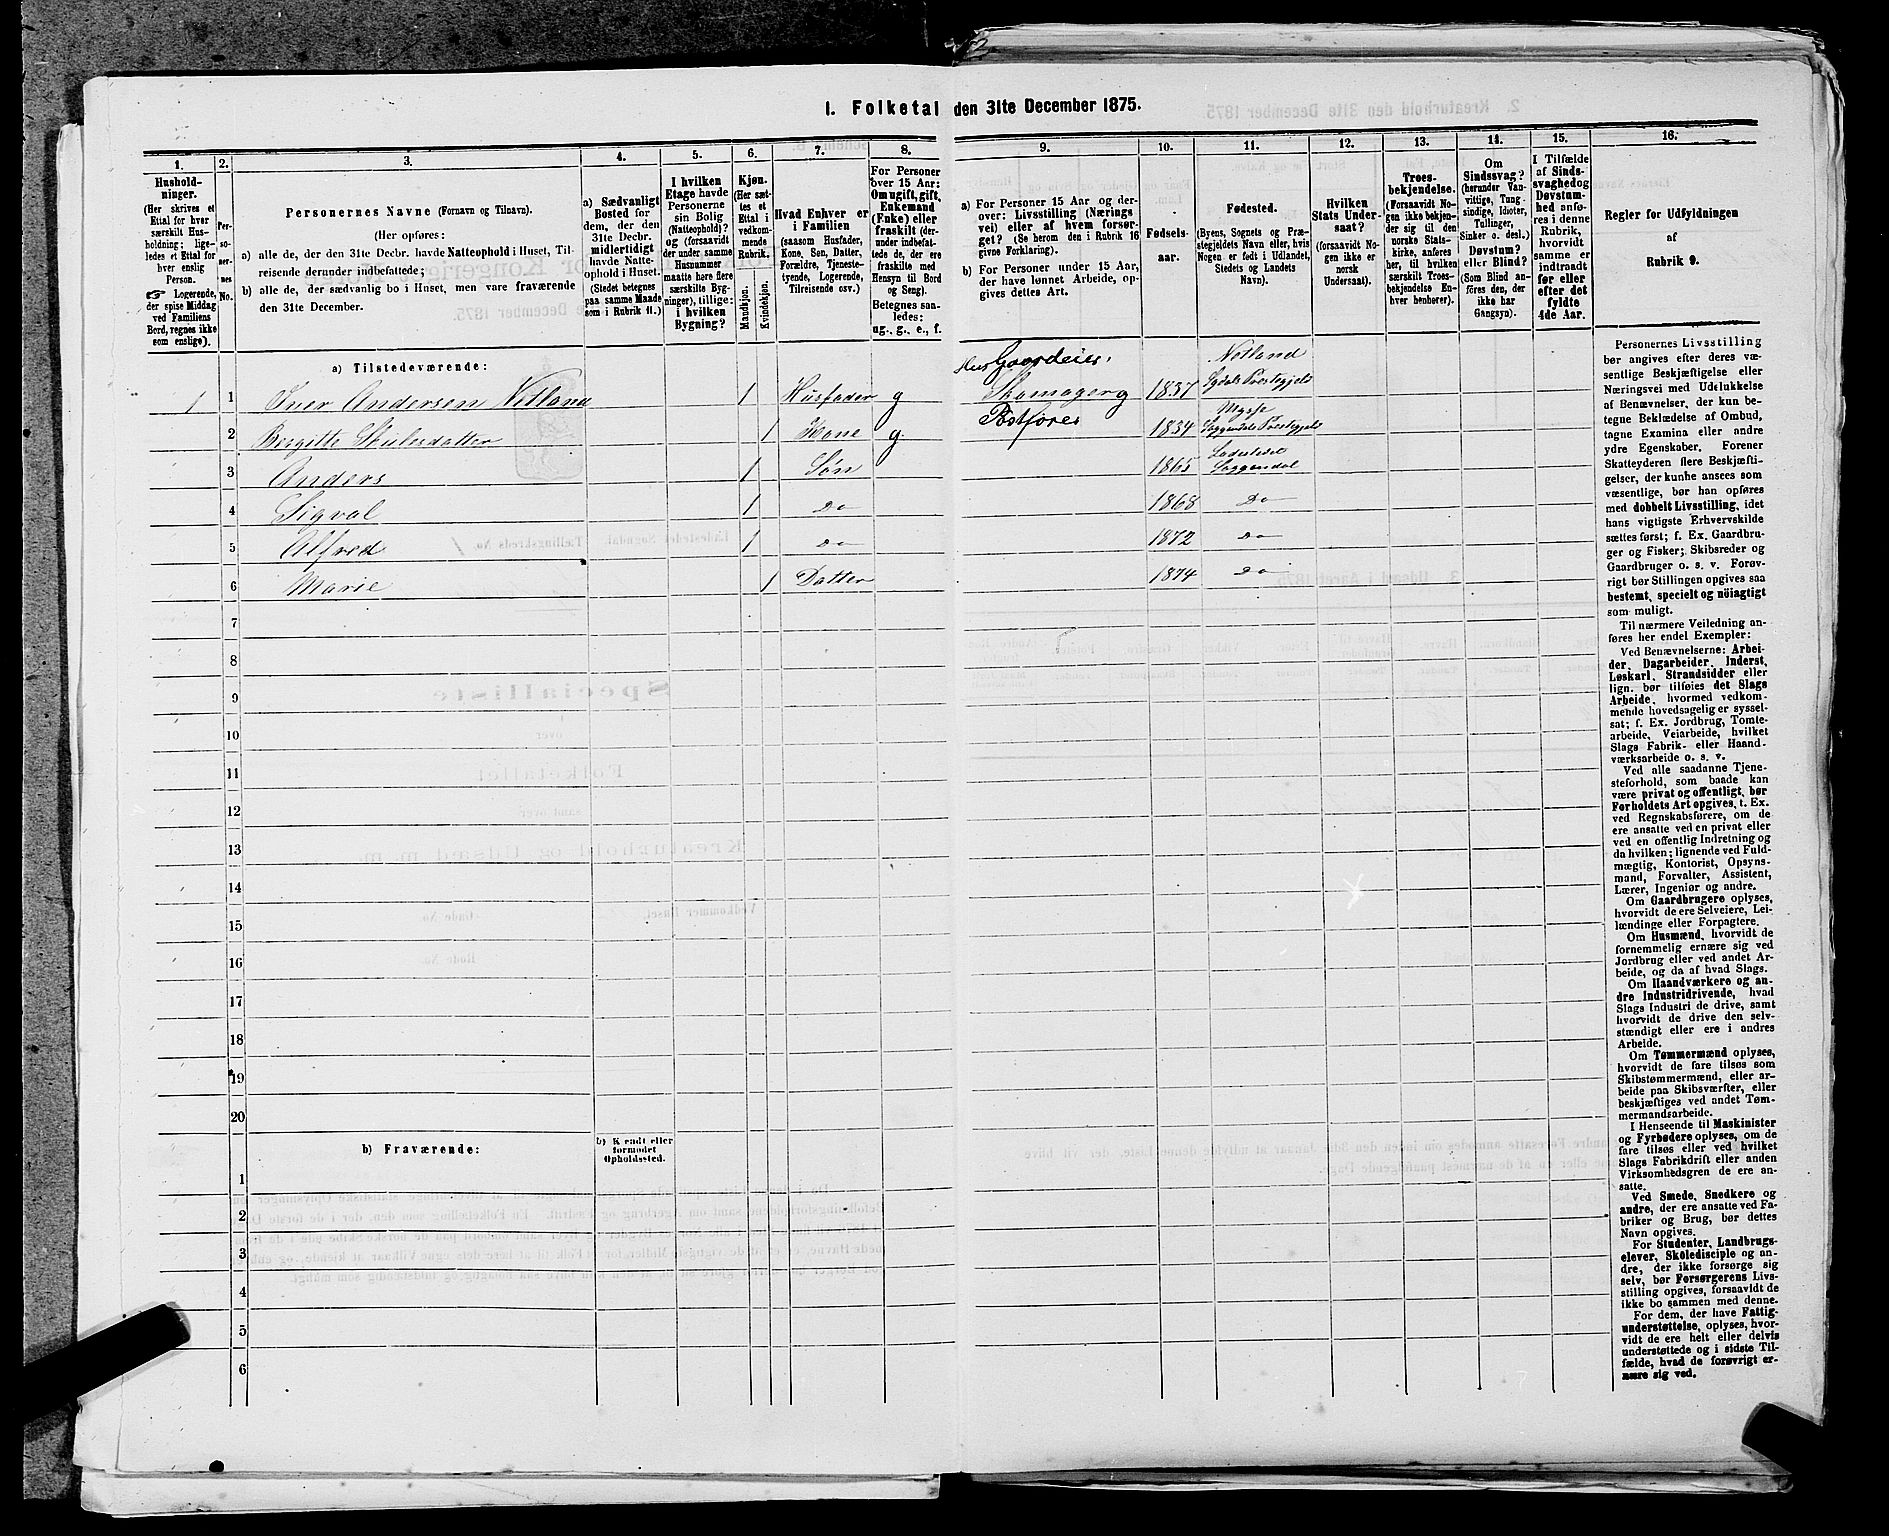 1. Folketal den 31te December 1875.
1.
Hushold-
ninger.
(Her skrives et
Ettal for hver
særskilt Hus-
holdning; lige-
ledes et Ettal for
hver enslig
Person.
☞ Logerende,
der spise Middag
ved Familiens
Bord, regnes ikke
som enslige).
2.
Per-
so-
ner-
nes
No.
3.
Personernes Navne (Fornavn og Tilnavn).
(Her opføres:
a) alle de, der den 31te Decbr. havde Natteophold i Huset, Til-
reisende derunder indbefattede;
b) alle de, der sædvanlig bo i Huset, men vare fraværende
den 31te December.
4.
a) Sædvanligt
Bosted for
dem, der den
31te Decbr.
midlertidigt
havde Natte-
ophold i Huset.
(Stedet betegnes
paa samme Maade
som i Rubrik 11.)
5.
I hvilken
Etage havde
Personerne
sin Bolig
(Natteophold)?
og (forsaavidt
der under samme
Husnummer
maatte høre flere
særskilte Byg-
ninger), tillige:
i hvilken
Bygning?
6.
Kjøn.
(Her sæt-
tes et
Ettal i
vedkom-
mende
Rubrik.
Mandkjøn.
Kvindekjøn.
7.
Hvad Enhver er
i Familien
(saasom Husfader,
Kone, Søn, Datter,
Forældre, Tjeneste-
tyende, Logerende,
Tilreisende osv.)
8.
For Personer
over 15 Aar:
Om ugift, gift,
Enkemand
(Enke) eller
fraskilt (der-
under indbefat-
tede de, der ere
fraskilte med
Hensyn til Bord
og Seng).
Betegnes saa-
ledes:
ug., g., e., f.
9.
a) For Personer 15 Aar og der-
over: Livsstilling (Nærings
vei) eller af hvem forsør-
get? (Se herom den i Rubrik 16
givne Forklaring).
b) For Personer under 15 Aar,
der have lønnet Arbeide, op-
gives dettes Art.
10.
Fødsels-
aar.
11.
Fødested.
(Byens, Sognets og Præ-
stegjeldets Navn eller, hvis
Nogen er født i Udlandet,
Stedets og Landets
Navn).
12.
Hvilken
Stats Under-
saat?
(forsaavidt No-
gen ikke er
norsk
Undersaat).
13.
Troes-
bekjendelse.
(Forsaavidt No-
gen ikke bekjen-
der sig til den
norske Stats-
kirke, anføres
her, til hvilken
særskilt Troes-
bekjendelse En-
hver henhører).
14.
Om
Sindssvag?
(herunder Van-
vittige, Tung-
sindige, Idioter,
Tullinger,
Sinker o. desl.)
Døvstum?
eller Blind?
(Som Blind an-
føres den, der
ikke har
Gangsyn).
15.
I Tilfælde
af Sinds-
svaghed og
Døvstum-
hed anfø-
res i denne
Rubrik,
hvorvidt
samme er
indtraadt
før eller
efter det
fyldte
4de Aar.
16.
Regler for Udfyldningen
af
Rubrik 9.
a) Tilstedeværende:
1 1 Iver Andersen Netland 1 Husfader g Hus Gaardeier, Skomager og Postfører 1837 Netland Egdals Præstegjeld
2 Bergitte Skulesdatter 1 Kone g. 1834 Mysse Soggendals Præstegjeld
3 Anders 1 Søn 1865 Ladested Soggendal
4 Sigval 1 Do 1868 Do
5 Alfred 1 Do 1872 Do
6 Marie 1 Datter 1874 Do
7
8
9
10
11
12
13
14
15
16
17
18
19
20
b) Fraværende:
b) Kjendt eller
formodet
Opholdssted.
1
2
3
4
5
6
Personernes Livsstilling
bør angives efter deres væ-
sentlige Beskjæftigelse eller
Næringsvei med Udelukkelse
af Benævnelser, der kun be-
tegne Beklædelse af Ombud,
tagne Examina eller andre
ydre Egenskaber. Forener
Skatteyderen flere Beskjæfti-
gelser, der kunne ansees som
væsentlige, bør han opføres
med dobbelt Livsstilling, idet
hans vigtigste Erhvervskilde
sættes først; f. Ex. Gaardbru-
ger og Fisker; Skibsreder og
Gaardbruger o. s. v. Forøv-
rigt bør Stillingen opgives saa
bestemt, specielt og nöiagtigt
som muligt.
Til nærmere Veiledning an-
føres her endel Exempler:
Ved Benævnelserne: Arbei-
der, Dagarbeider, Inderst,
Løskarl, Strandsidder eller
lign. bør tilføies det Slags
Arbeide, hvormed vedkom-
mende hovedsagelig er syssel-
sat; f. Ex. Jordbrug, Tomte-
arbeide, Veiarbeide, hvilket
Slags Fabrik- eller Haand-
værksarbeide o. s. v.
Ved alle saadanne Tjene-
steforhold, som baade kan
være privat og offentligt, bør
Forholdets Art opgives, t. Ex.
ved Regnskabsførere, om de
ere ansatte ved en privat eller
ved en offentlig Indretning og
da hvilken; lignende ved Fuld-
mægtig, Kontorist, Opsyns-
mand, Forvalter, Assistent,
Lærer, Ingeniør og andre.
Om Gaardbrugere oplyses,
hvorvidt de ere Selveiere, Lei-
lændinge eller Forpagtere.
Om Husmænd, hvorvidt de
fornemmelig ernære sig ved
Jordbrug eller ved andet Ar-
beide, og da af hvad Slags.
Om Haandværkere og an-
dre Industridrivende, hvad
Slags Industri de drive, samt
hvorvidt de drive den selv-
stændigt eller ere i andres
Arbeide.
Om Tømmermænd oplyses,
hvorvidt de fare tilsøs som
Skibstømmermænd, eller ar-
beide paa Skibsværfter, eller
beskjæftiges ved andet Tøm-
mermandsarbeide.
I Henseende til Maskinister
og Fyrbødere oplyses, om de
fare tilsøs eller ved hvilket
Slags Fabrikdrift eller anden
Virksomhedsgren de ere an-
satte.
Ved Smede, Snedkere og
andre, der ere ansatte ved Fa-
briker og Brug, bør dettes
Navn opgives.
For Studenter, Landbrugs-
elever, Skoledisciple og an-
dre, der ikke forsørge sig
selv, bør Forsørgerens Livs-
stilling opgives, forsaavidt de
ikke bo sammen med denne.
For dem, der have Fattig-
understøttelse, oplyses, hvor-
vidt de ere helt eller delvis
understøttede og i sidste Til-
fælde, hvad de forøvrigt er-
nære sig ved.